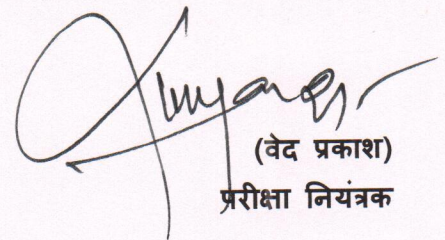 (वेद प्रकाश)
परीक्षा नियंत्रक